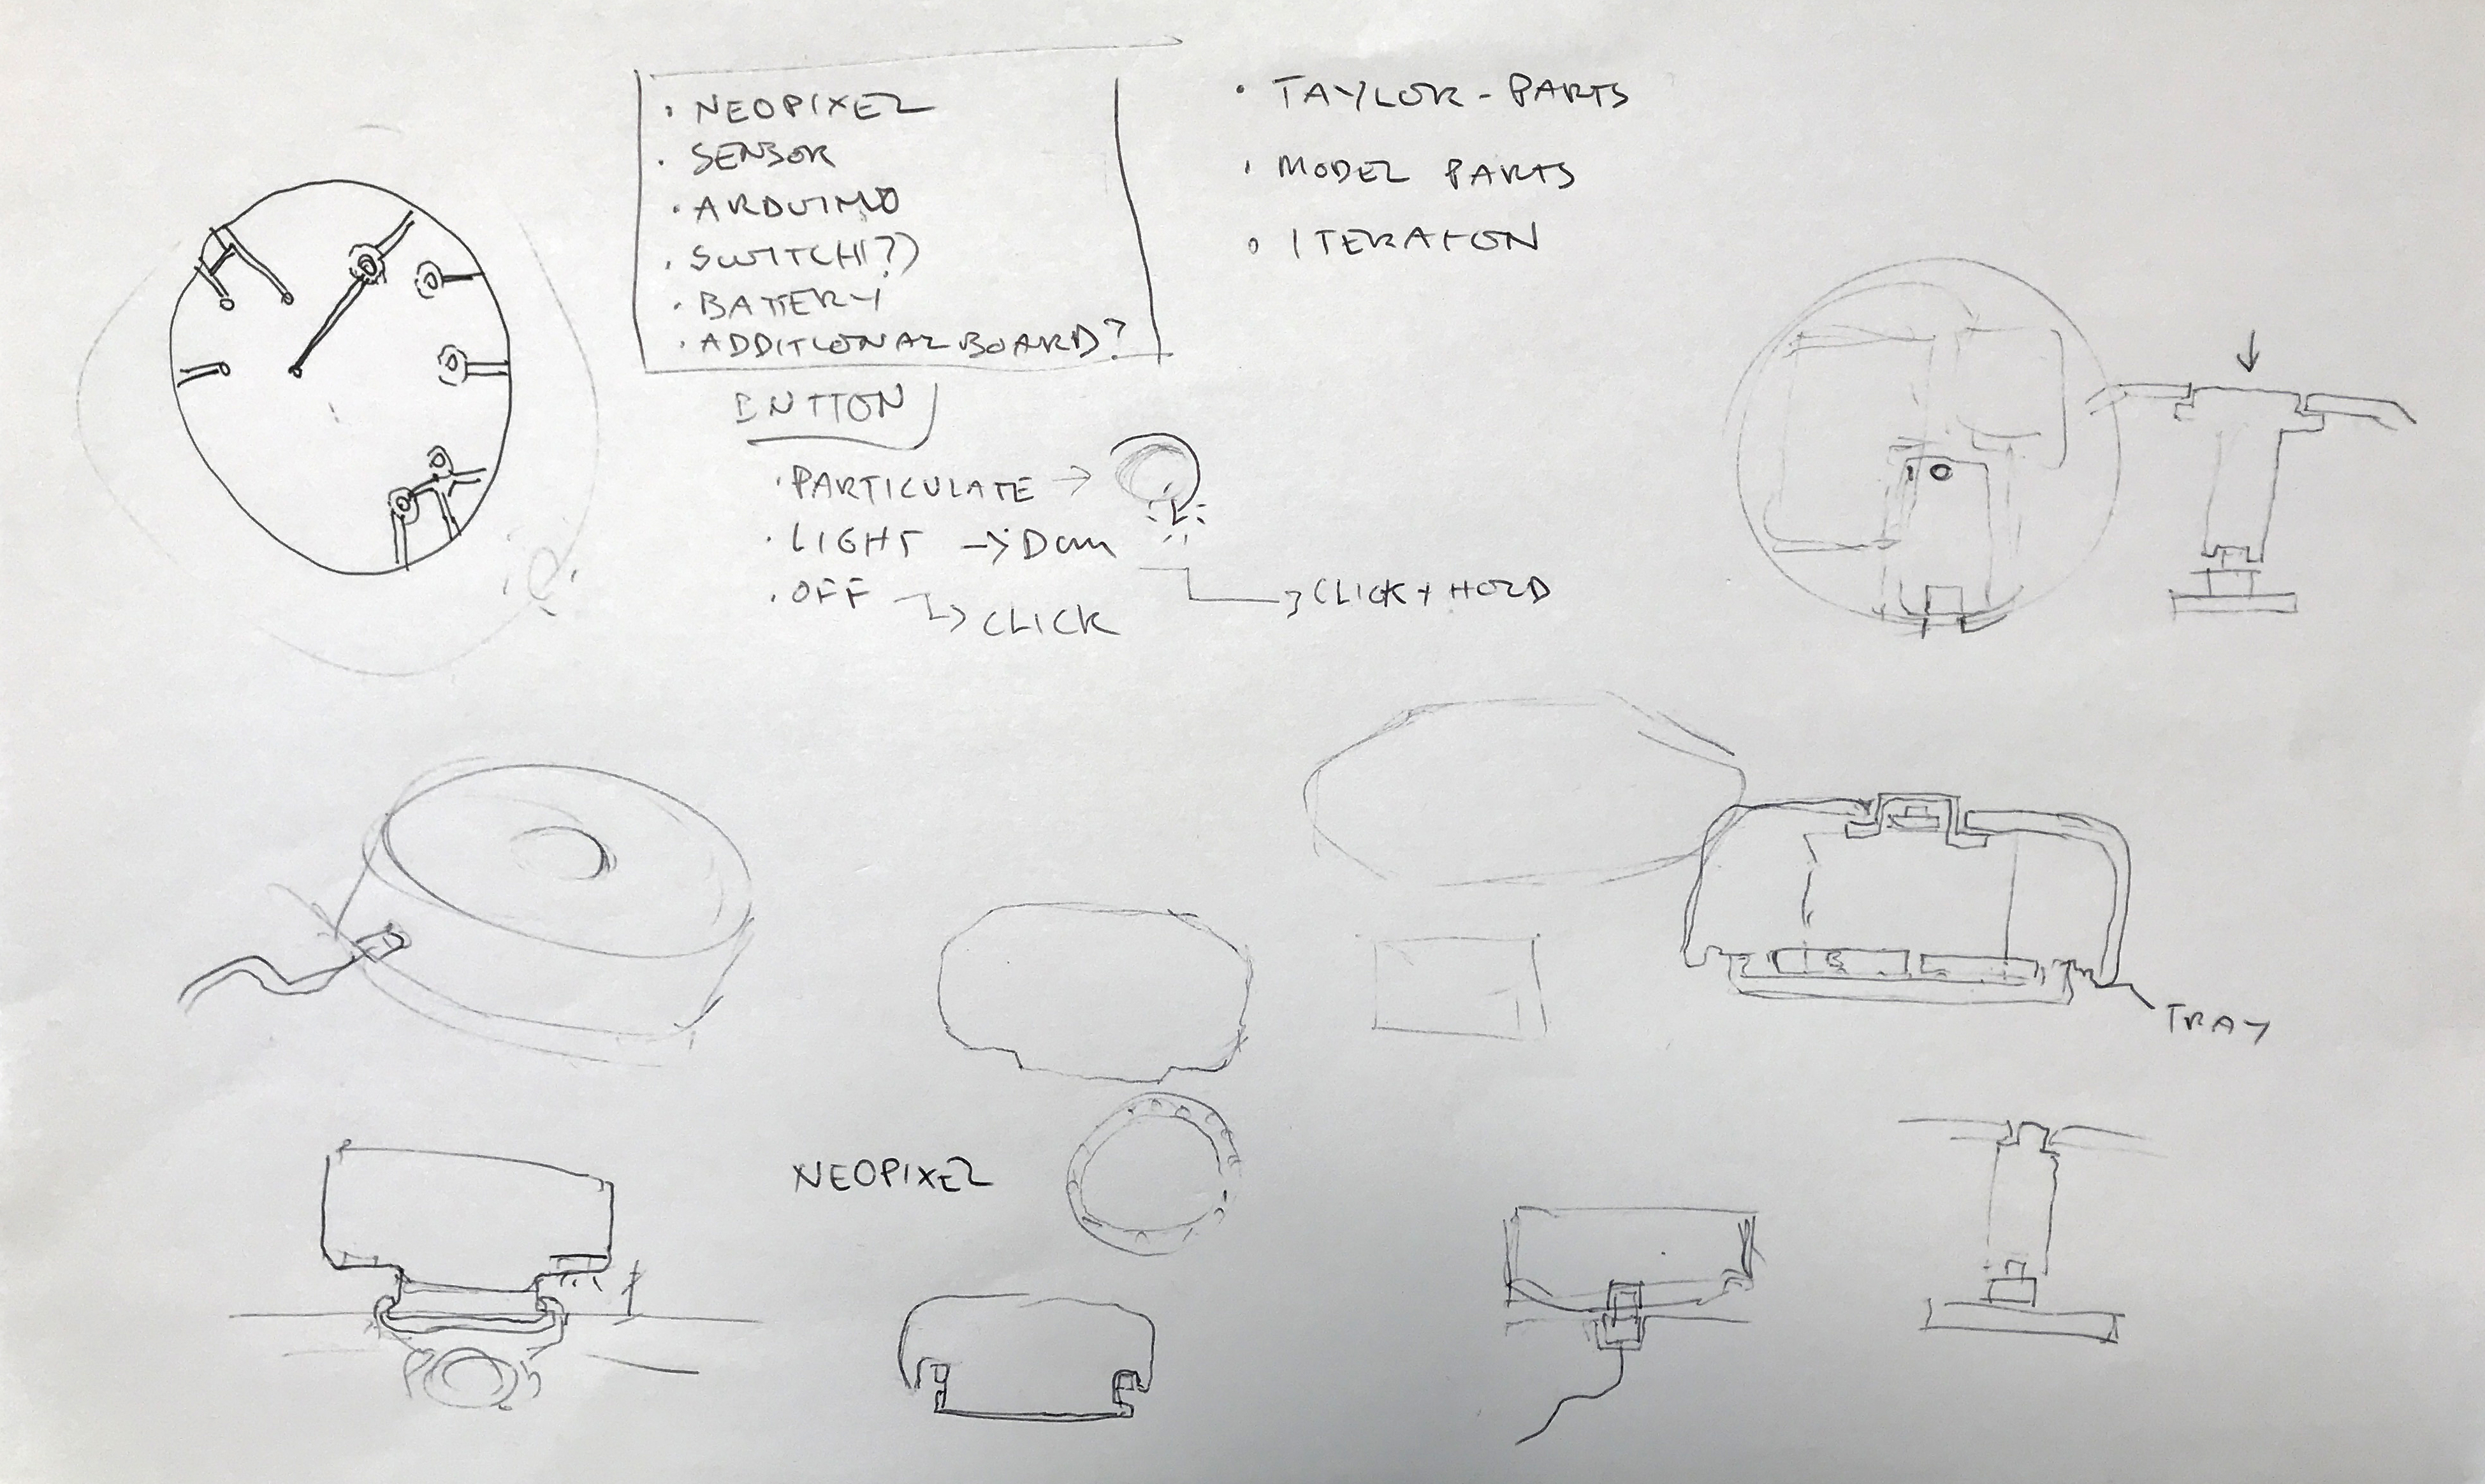 · NEOPIXEL
· SENSOR
· ARDUINO
· SWITCH(?)
· BATTERY
· ADDITIONAL BOARD?
BUTTON
· PARTICULATE →
· LIGHT → Dim
· OFF → CLICK
→ CLICK + HOLD
· TAYLOR - PARTS
· MODEL PARTS
· ITERATION
TRAY
NEOPIXEL